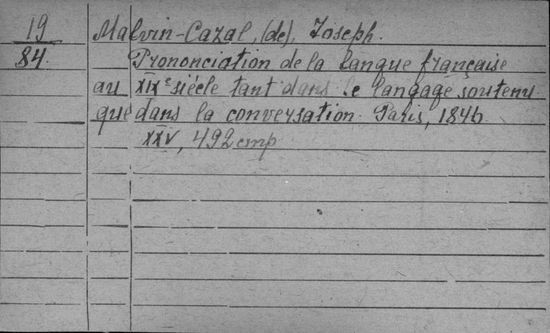 19
84.
Malvin-Cazal, (de), Joseph.
Prononciation de la langue française
au XIXe siécle tant dans le langage soutenu
que dans la conversation. Paris, 1846
XXV, 492 cmp